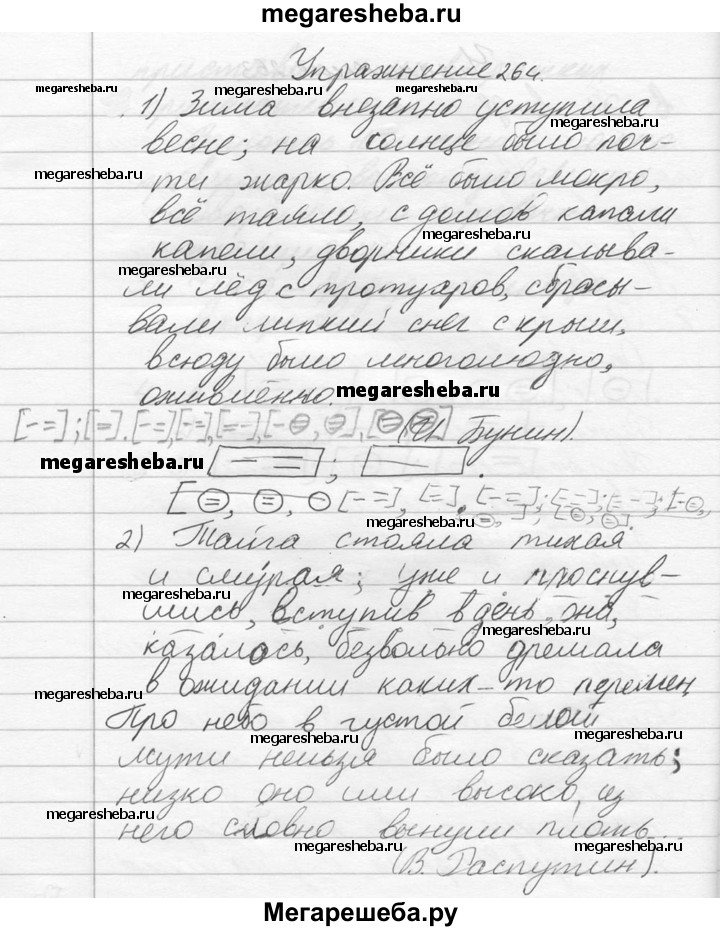 megaresheba.ru
Упражнение 264.
megaresheba.ru megaresheba.ru
1) Зима внезапно уступила
megaresheba.ru
весне; на солнце было поч-
megaresheba.ru
ти жарко. Всё было мокро,
всё таяло, с домов капали
megaresheba.ru
капели, дворники скалыва-
megaresheba.ru
ли лёд с тротуаров, сбрасы-
вали липкий снег с крыш,
megaresheba.ru
всюду было многолюдно,
оживлённо.
megaresheba.ru
(И. Бунин).
megaresheba.ru
megaresheba.ru
2) Тайга стояла тихая
и смурая; уже и проснув-
megaresheba.ru
шись, вступив в день, она,
megaresheba.ru
казалось, безвольно дремала
в ожидании каких-то перемен.
megaresheba.ru
Про небо в густой белой
megaresheba.ru megaresheba.ru
мути нельзя было сказать;
низко оно или высоко, из
megaresheba.ru
него словно вынули плоть...
megaresheba.ru megaresheba.ru
(В. Распутин).
Мегарешеба.ру